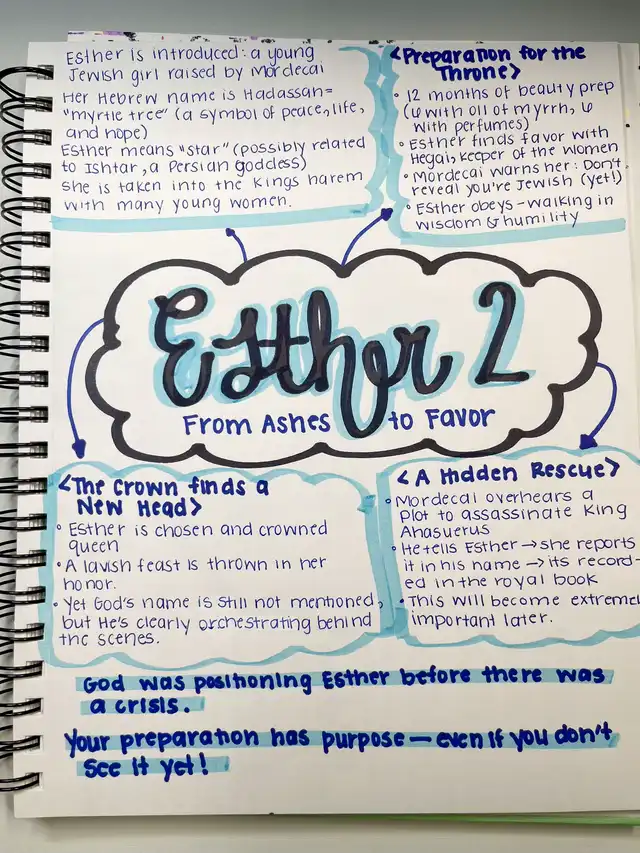 Esther is introduced: a young
Jewish girl raised by Mordecai
Her Hebrew name is Hadassah=
"myrtle tree" (a symbol of peace, life,
and hope)
Esther means "star" (possibly related
to Ishtar, a Persian goddess)
she is taken into the Kings harem
with many young women.
<Preparation for the
Throne>
• 12 months of beauty prep
(6 with oil of myrrh, 6
with perfumes)
• Esther finds favor with
Hegai, keeper of the women
• Mordecai warns her: Don't
reveal you're Jewish (yet!)
• Esther obeys - walking in
wisdom & humility
Esther 2
From Ashes to Favor
<The Crown finds a
New Head>
• Esther is chosen and crowned
queen
• A lavish feast is thrown in her
honor.
• Yet God's name is still not mentioned,
but He's clearly orchestrating behind
the scenes.
<A Hidden Rescue>
• Mordecai overhears a
plot to assassinate King
Ahasuerus
• He tells Esther → she reports
it in his name → its record-
ed in the royal book
• This will become extremel
important later.
God was positioning Esther before there was
a crisis.
Your preparation has purpose — even if you don't
see it yet!